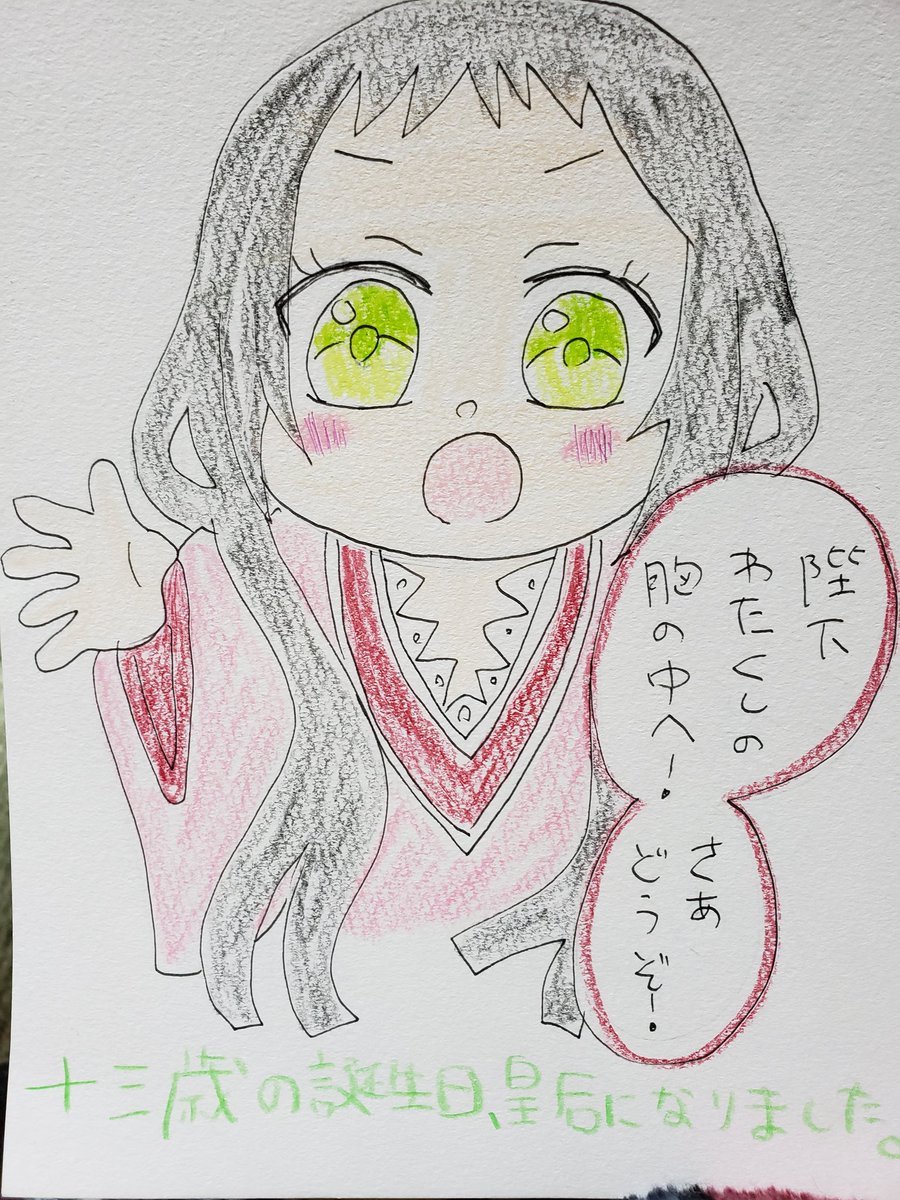 陛下
わたくしの
胸の中へー・
さあ
どうぞー・
十三歳の誕生日、皇后になりました。